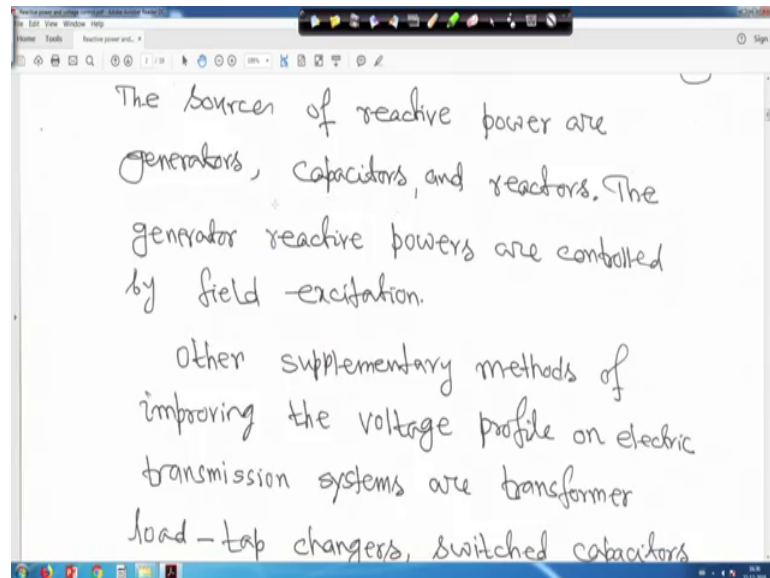 Reactive power and voltage control.pdf - Adobe Acrobat Reader DC
File Edit View Window Help
Home Tools Reactive power and... ×
Sign
The sources of reactive power are
generators, capacitors, and reactors. The
generator reactive powers are controlled
by field excitation.
Other supplementary methods of
improving the voltage profile on electric
transmission systems are transformer
load-tap changers, switched capacitors